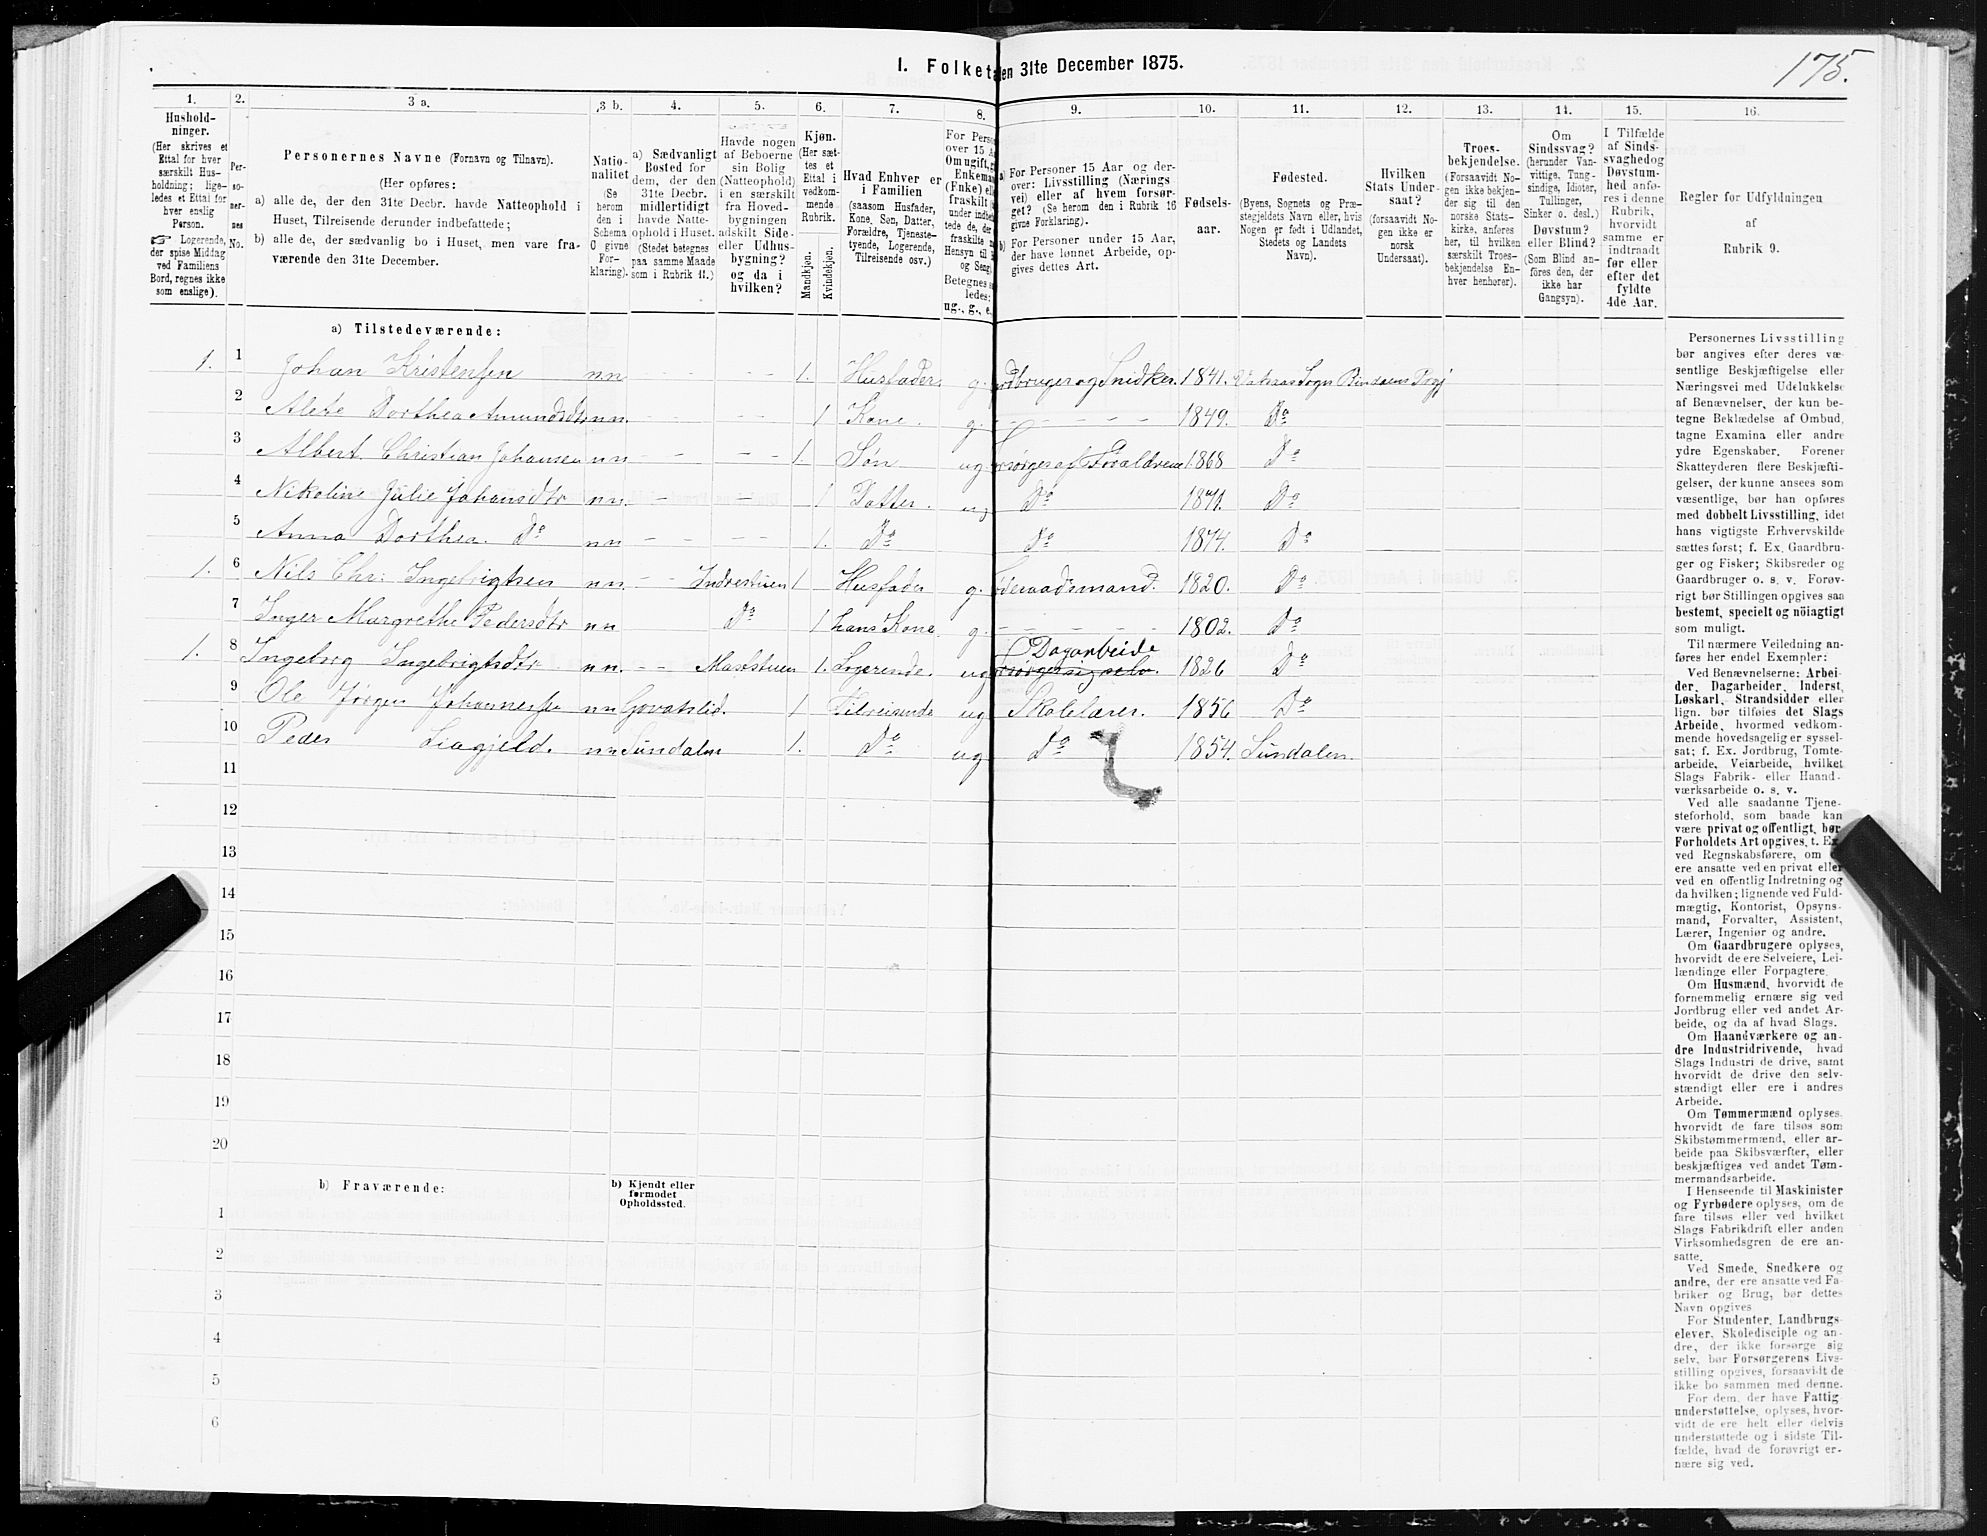 175.
I. Folketa en 31te December 1875.
1. 2. 3 a. 3 b. 4. 5. 6. 7. 8. 9. 10. 11. 12. 13. 14. 15. 16.
Husholdninger.
(Her skrives et Ettal for hver særskilt Husholdning; ligeledes et Ettal for hver enslig Person.
☞ Logerende, der spise Middag ved Familiens Bord, regnes ikke som enslige).
Personernes No.
Personernes Navne (Fornavn og Tilnavn).
(Her opføres:
a) alle de, der den 31te Decbr. havde Natteophold i Huset, Tilreisende derunder indbefattede;
b) alle de, der sædvanlig bo i Huset, men vare fraværende den 31te December.
Nationalitet
(Se herom den i Schema O givne Forklaring).
a) Sædvanligt Bosted for dem, der den 31te Decbr. midlertidigt havde Natteophold i Huset.
(Stedet betegnes paa samme Maade som i Rubrik 11.)
Havde nogen af Beboerne sin Bolig (Natteophold) i en særskilt fra Hovedbygningen adskilt Side- eller Udhusbygning? og da i hvilken?
Kjøn.
(Her sættes et Ettal i vedkommende Rubrik.
Mandkjøn.
Kvindekjøn.
Hvad Enhver er i Familien
(saasom Husfader, Kone, Søn, Datter, Forældre, Tjenestetyende, Logerende, Tilreisende osv.)
For Perso
over 15 A
Om ugift, g
Enkeman
(Fnke) ell
fraskilt
under indbe
tede de, der
fraskilte
Hensyn til
og Seng.
Betegnes s
ledes;
ug., g., e.
a) For Personer 15 Aar og derover: Livsstilling (Næringsvei) eller af hvem forsørget? (Se herom den i Rubrik 16 givne Forklaring).
b) For Personer under 15 Aar, der have lønnet Arbeide, opgives dettes Art.
Fødselsaar.
Fødested.
(Byens, Sognets og Præstegjeldets Navn eller, hvis Nogen er født i Udlandet, Stedets og Landets Navn).
Hvilken Stats Undersaat?
(forsaavidt Nogen ikke er norsk Undersaat).
Troesbekjendelse.
(Forsaavidt Nogen ikke bekjender sig til den norske Statskirke, anføres her, til hvilken særskilt Troesbekjendelse Enhver henhører).
Om Sindssvag?
(herunder Vanvittige, Tungsindige, Idioter, Tullinger, Sinker o. desl.)
Døvstum? eller Blind?
(Som Blind anføres den, der ikke har Gangsyn).
I Tilfælde af Sindssvaghedog Døvstumhed anføres i denne Rubrik, hvorvidt samme er indtraadt før eller efter det fyldte 4de Aar.
Regler for Udfyldningen
af
Rubrik 9.
a) Tilstedeværende:
1. 1 Johan Kristensen nn - - - 1. Husfader. g. rdbruger og Snidker. 1841. Sogn Bindalens Prgj
2 Dorthea Amundsdtr nn. - - - 1 Kone. g. - - - - 1849. Do
3 Albert Christian Johansen nn - - - 1. Søn ug rsørges af Foraldrene 1868 Do
4 Nikoline Julie Johansdtr nn. - - - 1 Datter. ug Do 1871. Do
5 Anna Dorthea. Do nn - - - 1. Do Do 1874. Do
1. 6 Nils Chr: Ingebrigtsen nn. - - Indrestuen 1 Husfader g. øderaadsmand. 1820. Do
7 Inger Margrethe Pedersdtr nn Do 1 hans Kone. g. - - - - 1802. Do
Dagarbeide
1. 8 Ingeborg Ingebrigtsdtr nn. - - Maststuen 1. Logerende. ug rsørger sig selv. 1826 Do
9 Ole Jørgen Johannessen nn 1 Tilreisende ug Skolelærer. 1856 Do
10 Peder Liagjeld. nn Sundalen 1. Do ug Do 1854. Sundalen.
11
12
13
14
15
16
17
18
19
20
b) Fraværende:
b) Kjendt eller formodet Opholdssted.
1
2
3
4
5
6
Personernes Livsstilling
bør angives efter deres væ-
sentlige Beskjæftigelse eller
Næringsvei med Udelukkelse
af Benævnelser, der kun be-
tegne Beklædelse af Ombud,
tagne Examina eller andre
ydre Egenskaber. Forener
Skatteyderen flere Beskjæfti-
gelser, der kunne ansees som
væsentlige, bør han opføres
med dobbelt Livsstilling, idet
hans vigtigste Erhvervskilde
sættes først; f. Ex. Gaardbru-
ger og Fisker; Skibsreder og
Gaardbruger o. s. v. Forøv-
rigt bør Stillingen opgives saa
bestemt, specielt og nöiagtigt
som muligt.
Til nærmere Veiledning an-
føres her endel Exempler:
Ved Benævnelserne: Arbei-
der, Dagarbeider, Inderst,
Løskarl, Strandsidder eller
lign. bør tilføies det Slags
Arbeide, hvormed vedkom-
mende hovedsagelig er syssel-
sat; f. Ex. Jordbrug, Tomte-
arbeide, Veiarbeide, hvilket
Slags Fabrik- eller Haand-
værksarbeide o. s. v.
Ved alle saadanne Tjene-
steforhold, som baade kan
være privat og offentligt, bør
Forholdets Art opgives, t. Ex.
ved Regnskabsførere, om
ere ansatte ved en privat eller
ved en offentlig Indretning og
da hvilken; lignende ved Fuld-
mægtig, Kontorist, Opsyns-
mand, Forvalter, Assistent,
Lærer, Ingeniør og andre.
Om Gaardbrugere oplyses,
hvorvidt de ere Selveiere, Lei-
lændinge eller Forpagtere.
Om Husmænd, hvorvidt de
fornemmelig ernære sig ved
Jordbrug eller ved andet Ar-
beide, og da af hvad Slags.
Om Haandværkere og an-
dre Industridrivende, hvad
Slags Industri de drive, samt
hvorvidt de drive den selv-
stændigt eller ere i andres
Arbeide.
Om Tømmermænd oplyses,
hvorvidt de fare tilsøs som
Skibstømmermænd, eller ar-
beide paa Skibsværfter, eller
beskjæftiges ved andet Tøm-
mermandsarbeide.
I Henseende til Maskinister
og Fyrbødere oplyses, om de
fare tilsøs eller ved hvilket
Slags Fabrikdrift eller anden
Virksomhedsgren de ere an-
satte.
Ved Smede, Snedkere og
andre, der ere ansatte ved Fa-
briker og Brug, bør dettes
Navn opgives
For Studenter, Landbrugs-
elever, Skoledisciple og an-
dre, der ikke forsørge sig
selv, bør Forsørgerens Livs-
stilling opgives, forsaavidt de
ikke bo sammen med denne.
For dem, der have Fattig-
understøttelse, oplyses, hvor-
vidt de ere helt eller delvis
understøttede og i sidste Til-
fælde, hvad de forøvrigt er-
nære sig ved.